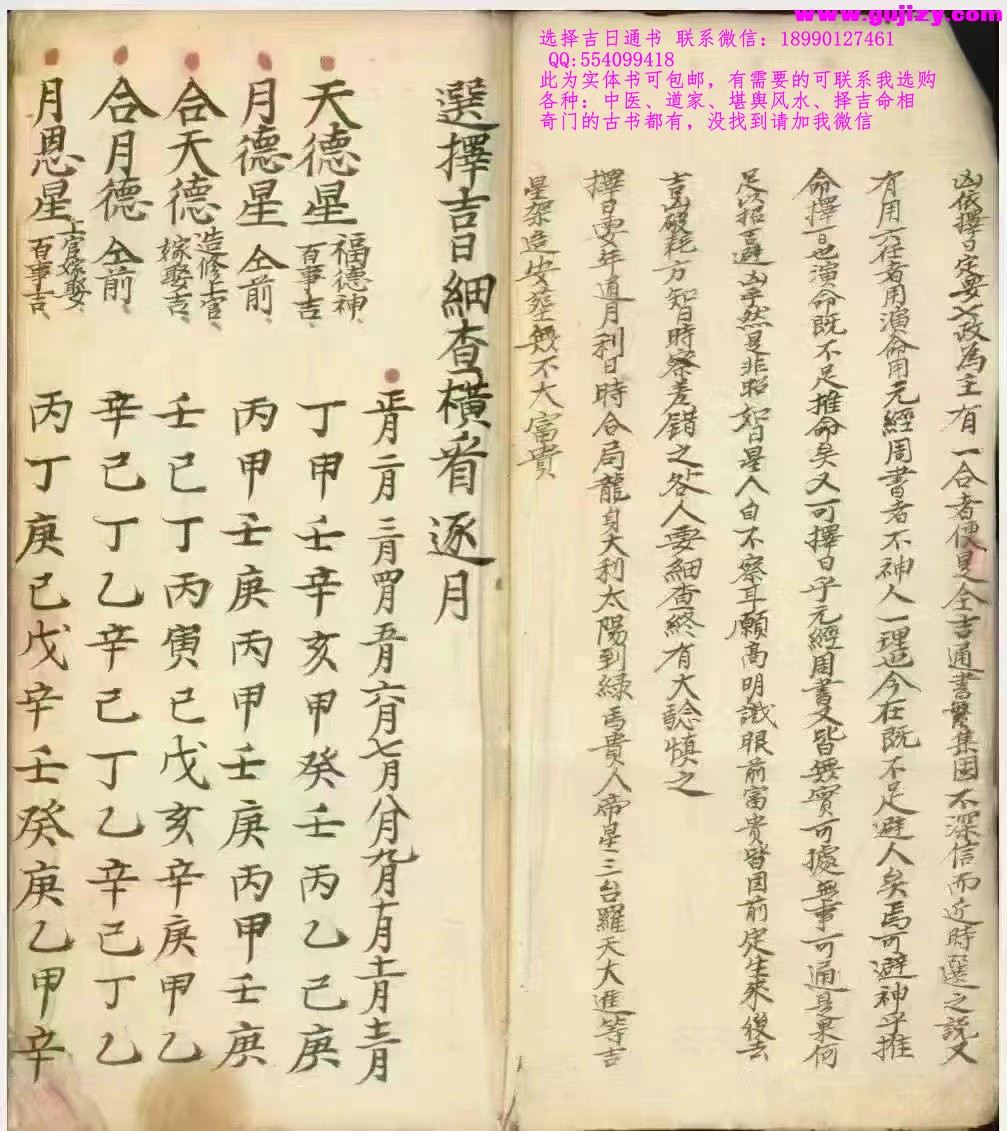 www.gujizy.com
选择吉日通书 联系微信：18990127461
QQ:554099418
此为实体书可包邮，有需要的可联系我选购
各种：中医、道家、堪舆风水、择吉命相
奇门的古书都有，没找到请加我微信
凶依擇日定要以政為主有一合者便是全吉通書繁集固不深信而近時選之説又
有用六在者用演命用元經周書者不神人一理也今在既不足避人矣焉可避神乎推
命擇一日也演命既不足推命矣又可擇日乎元經周書又皆無實可據無事可通是果何
足以招吉避凶乎然是非昭如日星人自不察耳願高明識眼前富貴皆因前定生來後去
吉凶破耗方知日時察差錯之咎人要細查終有大驗慎之
擇日要年道月利日時合局龍身大利太陽到緑馬貴人帝星三台羅天大進等吉
星架造安塟無不大富貴
選擇吉日細查橫看逐月
正月二月三月四月五月六月七月八月九月十月十一月十二月
天德星 福德神、百事吉、 丁申壬辛亥甲癸壬丙乙己庚
月德星 仝前、 丙甲壬庚丙甲壬庚丙甲壬庚
合天德 造修上官、嫁娶吉、 壬巳丁丙寅已戊亥辛庚甲乙
合月德 仝前、 辛己丁乙辛己丁乙辛己丁乙
月恩星 上官嫁娶、百事吉、 丙丁庚己戊辛壬癸庚乙甲辛